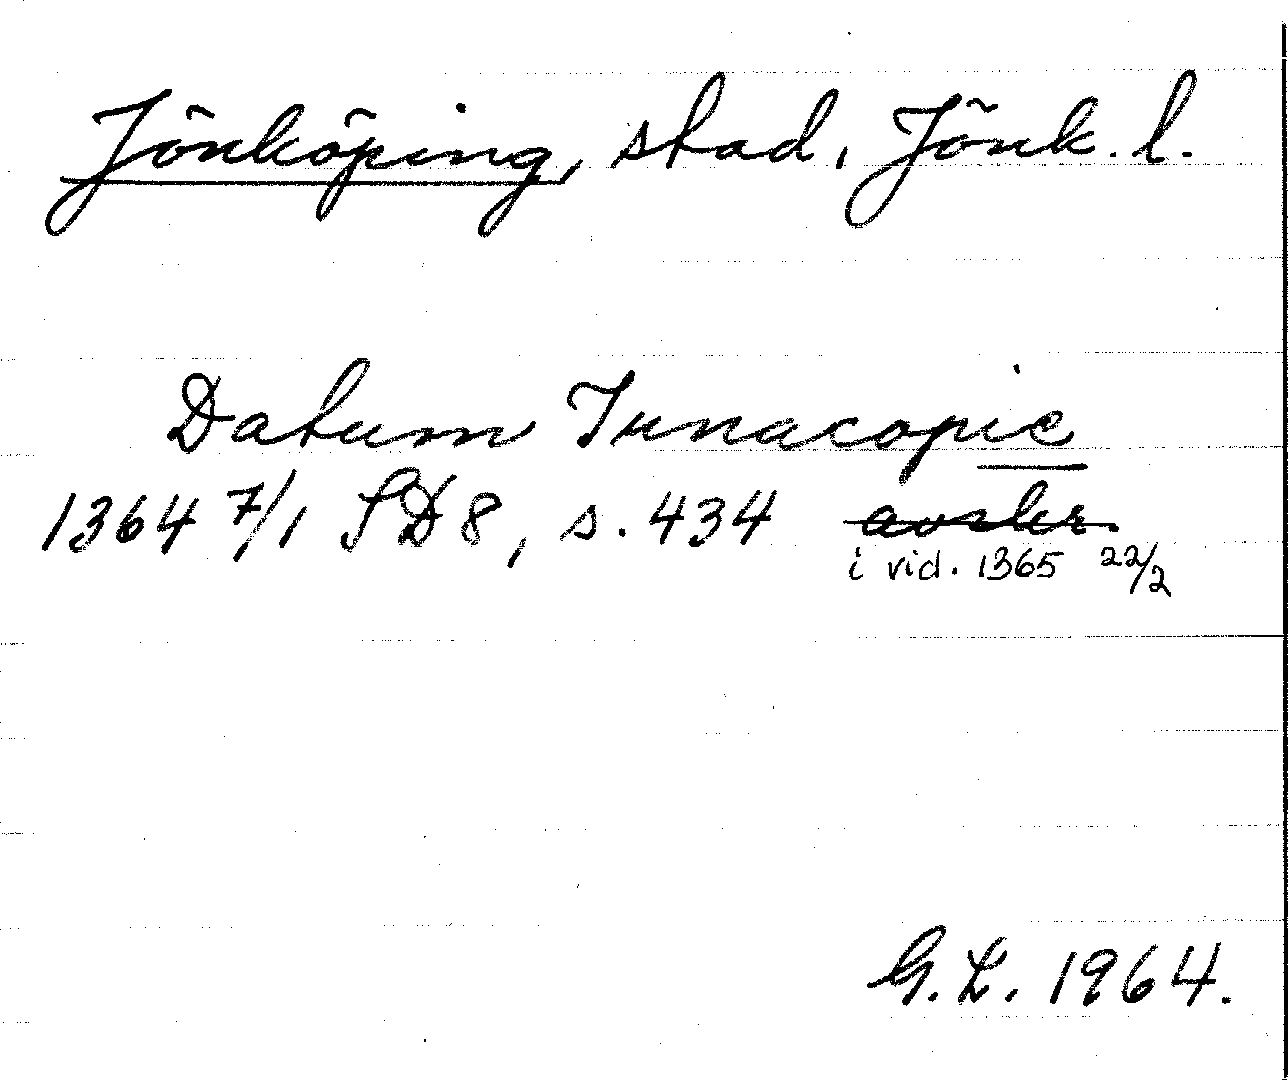 Jönköping, stad, Jönk. l.
Datum Junacopie
1364 7/1 SD 8, s. 434 avskr.
i vid. 1365 22/2
G. L. 1964.